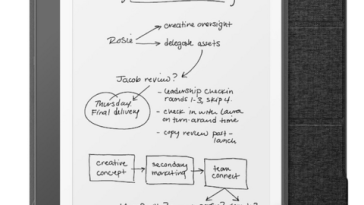 creative oversight
Rosie
delegate assets
Jacob review?
Thursday
Final delivery
- leadership checkin
rounds 1-3, skip 4.
- check in with Laura
on turn around time
- copy review post-
launch
creative
concept
secondary
marketing
team
connect